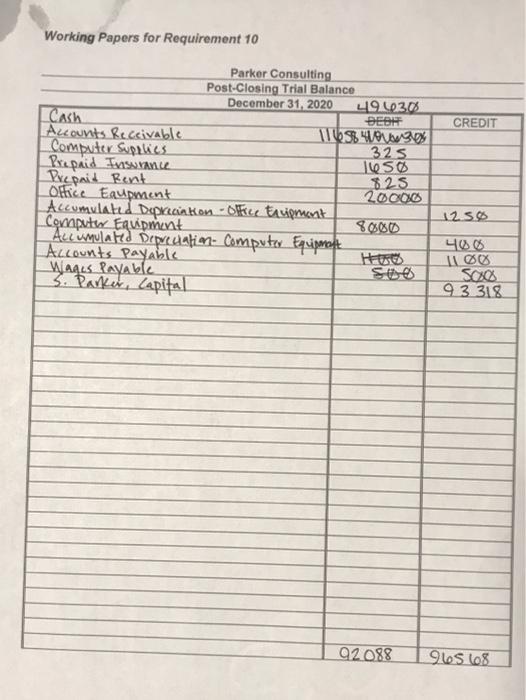 Working Papers for Requirement 10
Parker Consulting
Post-Closing Trial Balance
December 31, 2020 49630
DEBIT CREDIT
Cash
Accounts Receivable 11658
Computer Supplies 325
Prepaid Insurance 1650
Prepaid Rent 825
Office Eaupment 20000
Accumulated Depreciation - Office Equipment 1250
Computer Equipment 8000
Accumulated Depreciation - Computer Equipment 400
Accounts Payable 1100
Wages Payable 500 500
S. Parker, Capital 93 318
92088 96568